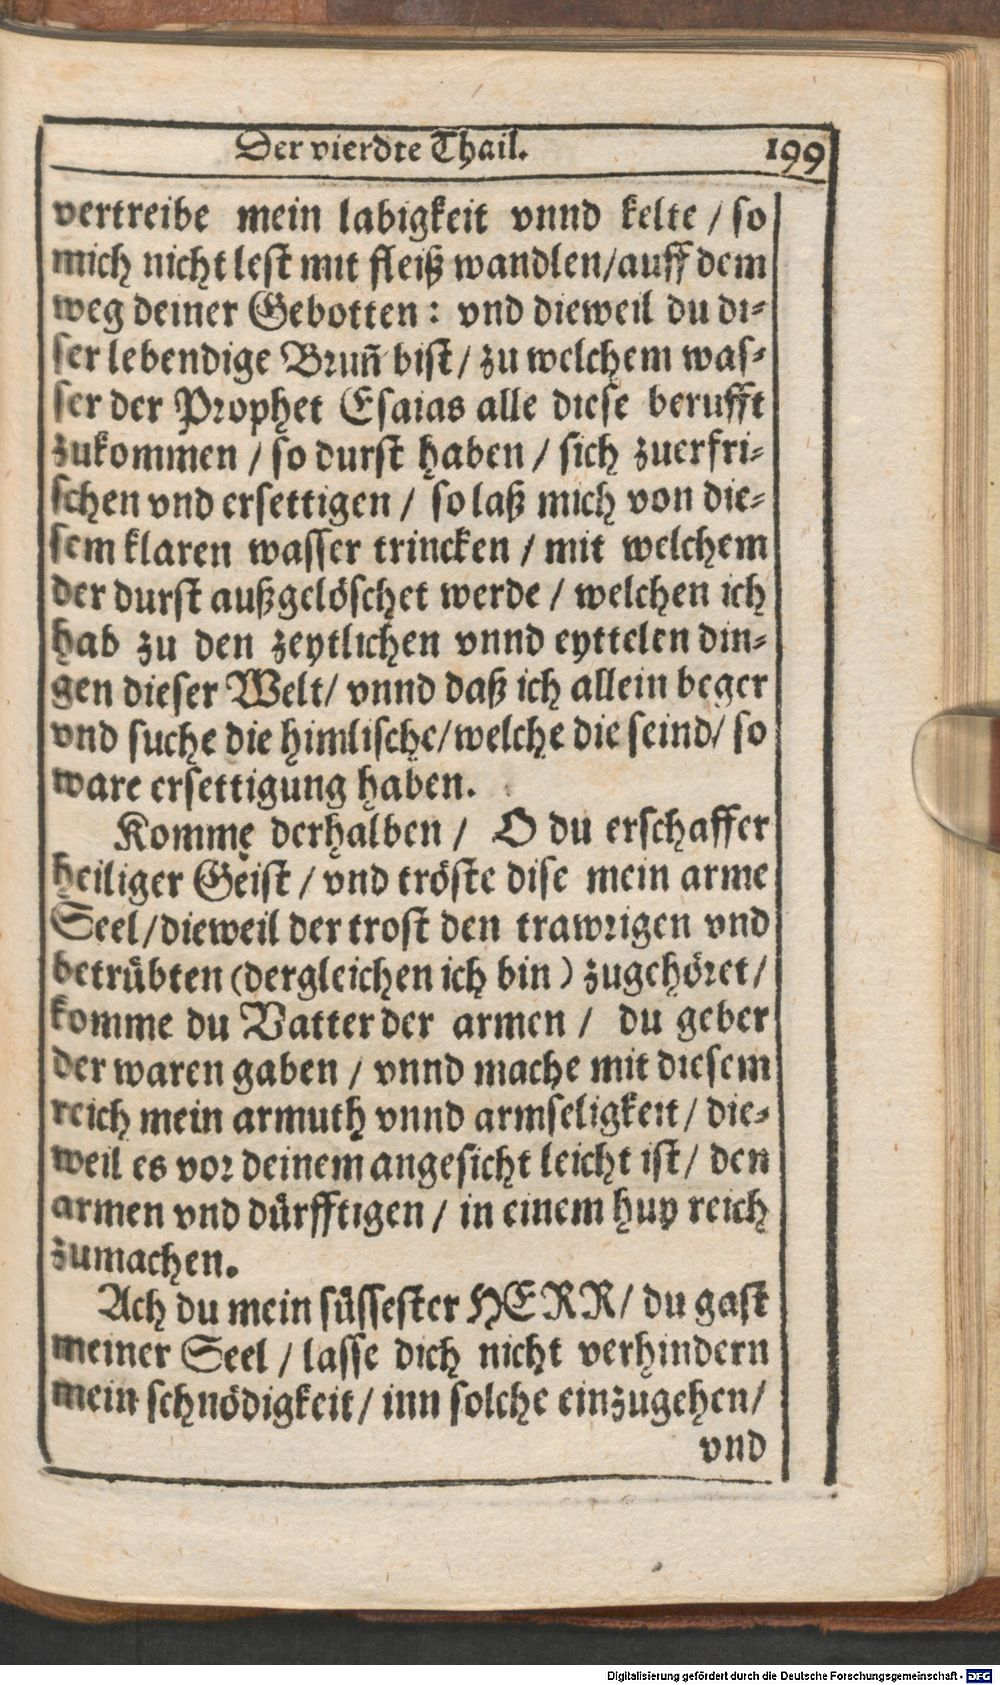 Der vierdte Thail. 199
vertreibe mein labigkeit vnnd kelte / so
mich nicht lest mit fleiß wandlen/auff dem
weg deiner Gebotten: vnd dieweil du di-
ser lebendige Brun̄ bist / zu welchem was-
ser der Prophet Esaias alle diese berufft
zukommen / so durst haben / sich zuerfri-
schen vnd ersettigen / so laß mich von die-
sem klaren wasser trincken / mit welchem
der durst außgelöschet werde / welchen ich
hab zu den zeytlichen vnnd eyttelen din-
gen dieser Welt/ vnnd daß ich allein beger
vnd suche die himlische/welche die seind/ so
ware ersettigung haben.
Komme derhalben / O du erschaffer
heiliger Geist / vnd tröste dise mein arme
Seel/dieweil der trost den trawrigen vnd
betrübten (dergleichen ich bin) zugehöret/
komme du Vatter der armen / du geber
der waren gaben / vnnd mache mit diesem
reich mein armuth vnnd armseligkeit/ die-
weil es vor deinem angesicht leicht ist/ den
armen vnd dürfftigen / in einem huy reich
zumachen.
Ach du mein süssester HERR/ du gast
meiner Seel / lasse dich nicht verhindern
mein schnödigkeit/ inn solche einzugehen/
vnd
Digitalisierung gefördert durch die Deutsche Forschungsgemeinschaft - DFG